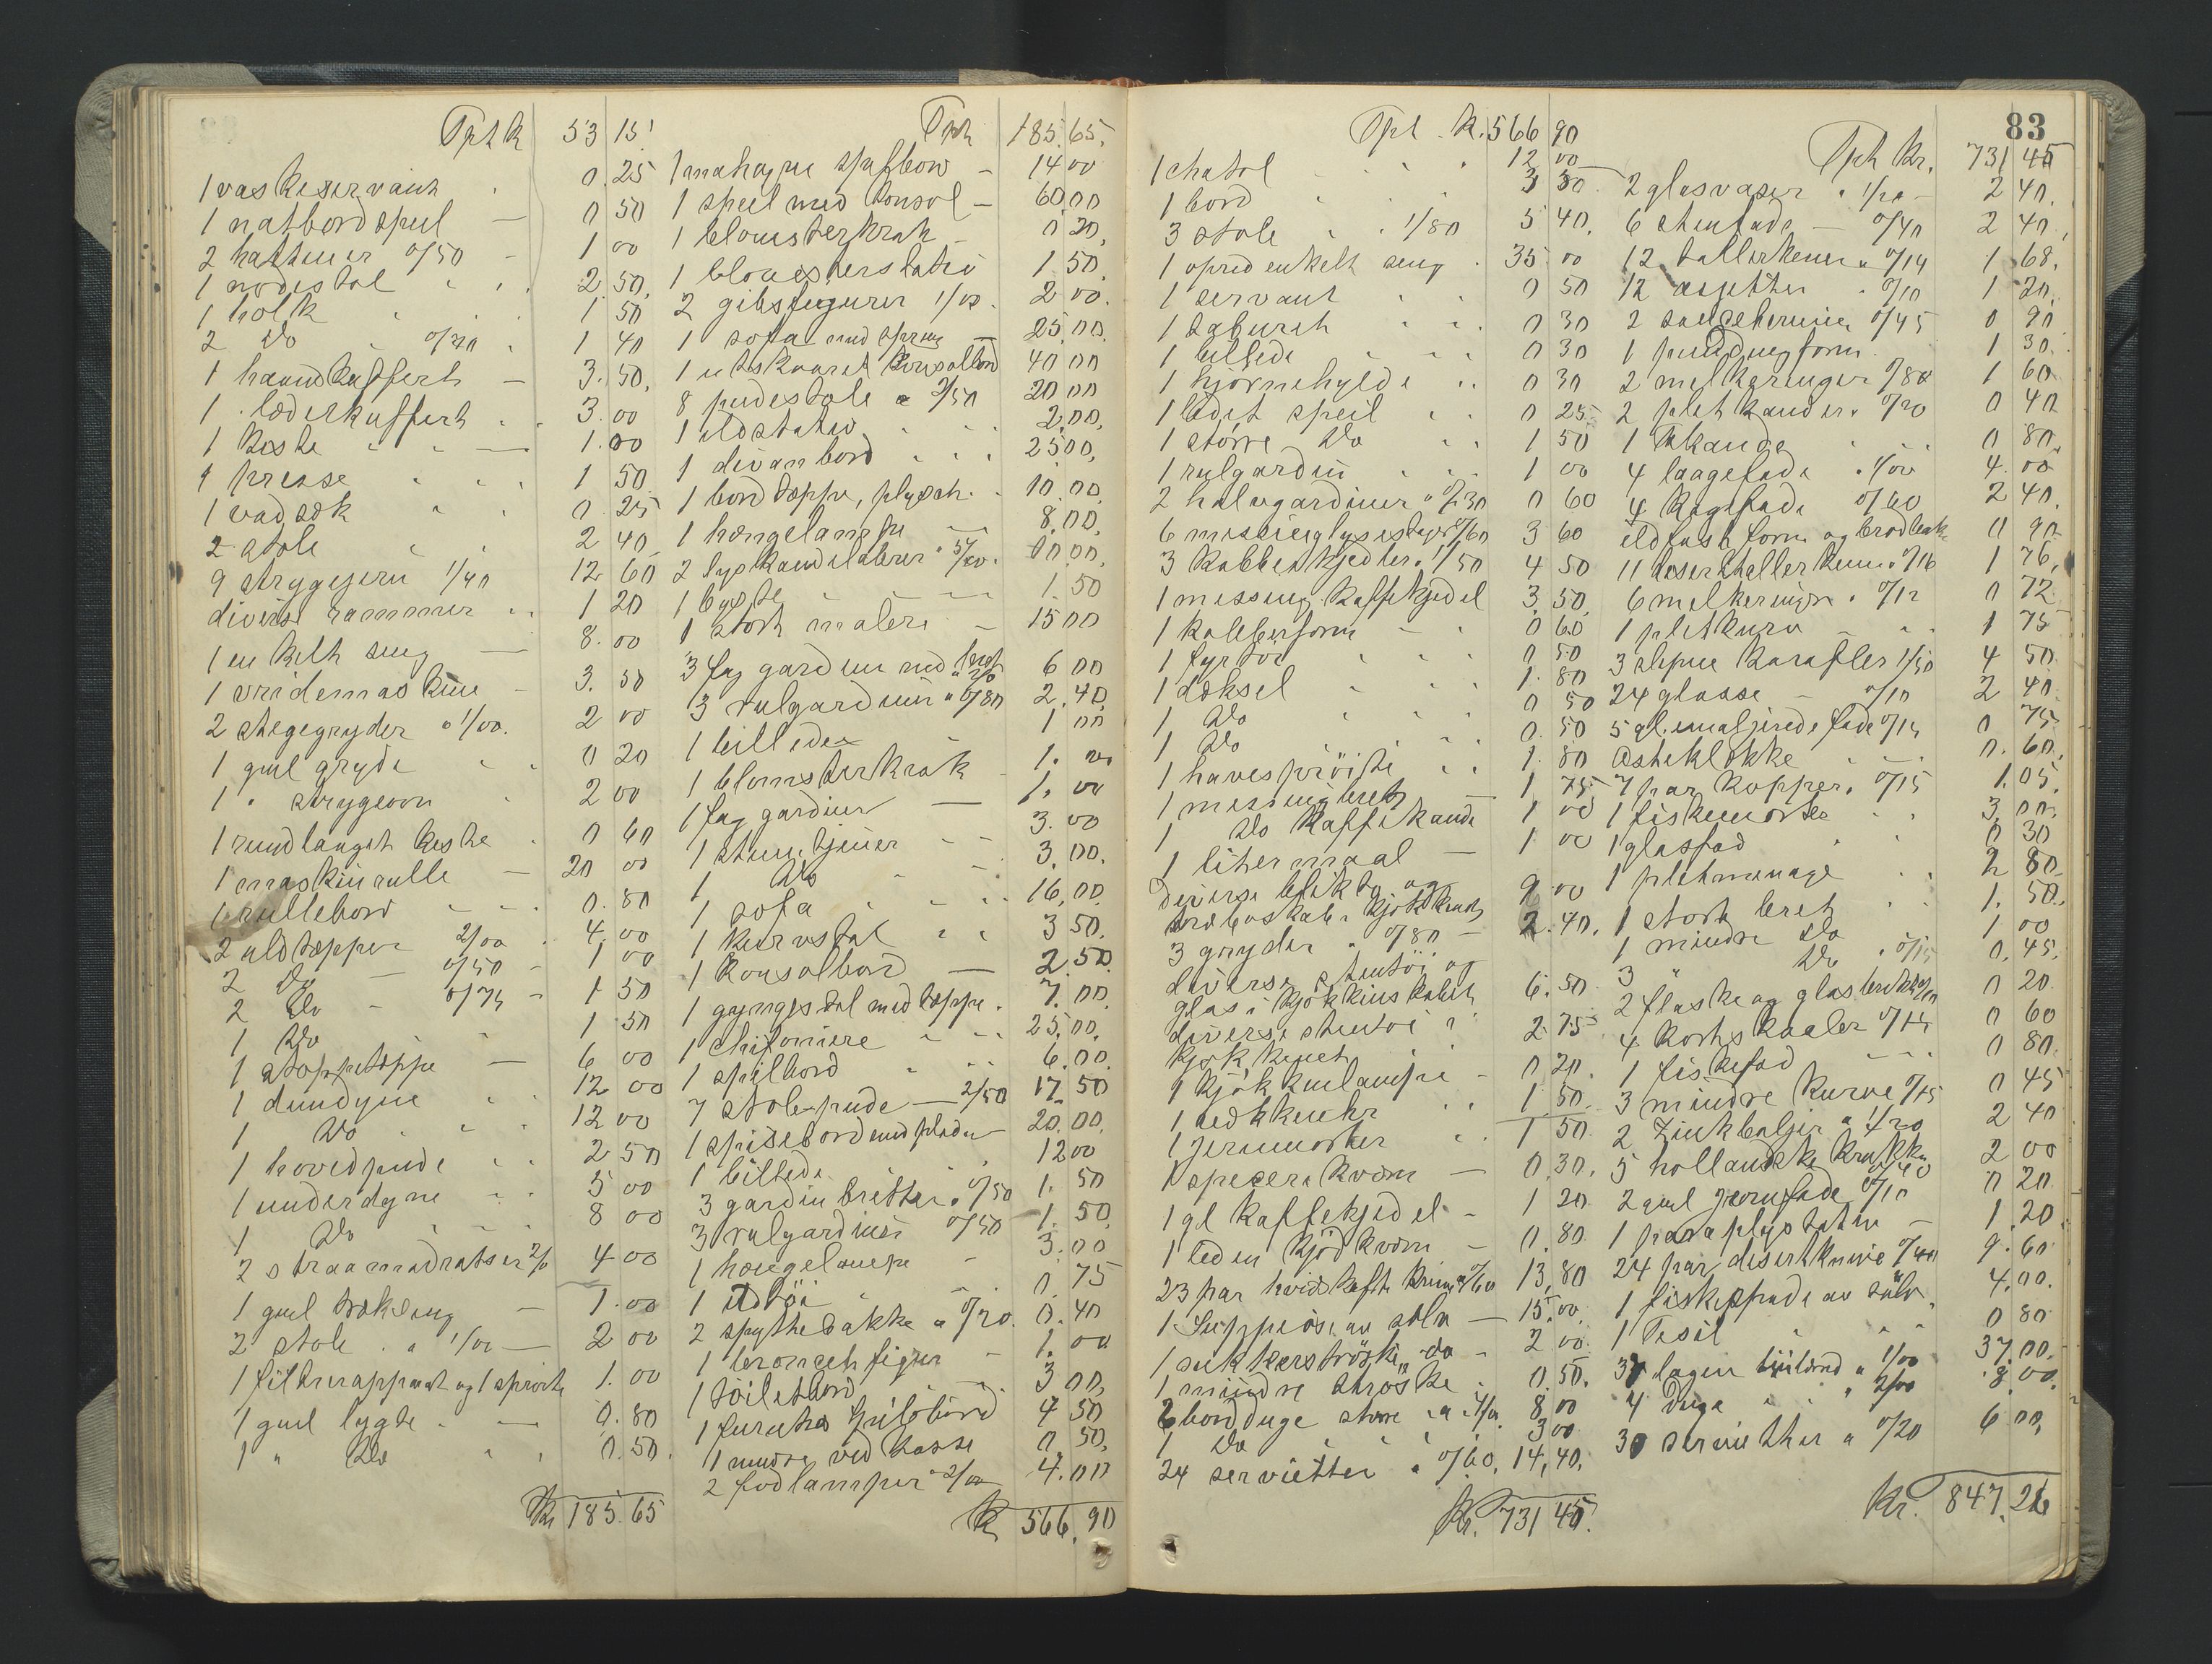 Tpt k 53 15
1 vaskeservant 0.25
1 natbordspeil — 0 50
2 hattuier 0/50 — 1 00
1 nødestol 2 50
1 holk 1 50
2 do 0/70 1 40
1 haandkuffert — 3.50
1 læderkuffert 3.00
1 kiste — 1.00
1 presse 1 50
1 vadsæk 0.25
2 stole 2 40
9 strygejern 1/40 12 60
diverse rammer 1 20
1 enkelt seng — 8.00
1 vridemaskine — 3.50
2 stegegryder a 1/00. 2 00
1 gml gryde 0 20
1 " strygeovn 2 00
1 rundlaugt kiste 0 60
1 maskinrulle — 20 00
1 rullebord 0.80
2 uldtæpper 2/00 4.00
2 do — 0/50 — 1 00
2 do — 0/75 — 1 50
1 do 1 50
1 stoppetæppe — 6 00
1 dundyne 12 00
1 do 12 00
1 hovedpude 2 50
1 underdyne 5 00
1 do 8 00
2 straamadratser 2/0 4 00
1 gml trækseng — 1.00
2 stole a 1/00 — 2 00
1 filtrerapparat og 1 sprøite 1.00
1 gml lygte — 0.80
1 " do 0.50
Kr 185.65
Tpt 185.65
1 mahogni spilbord — 14 00
1 speil med konsol — 60 00
1 blomsterkrak — 0 20
1 blomsterstativ 1 50
2 gibsfigurer 1/00. 2 00
1 sofa med spring — 25.00
1 utskaaret konsolbord 40 00
8 pudestole a 2/50 20 00
1 ildstativ 2.00
1 divanbord 25 00
1 bordtæppe, plysch. 10.00
1 hængelampe — 8.00
2 lyskandelabrer a 5/00. 10.00
1 byste — 1.50
1 stort maleri — 15 00
3 fag gardiner med bret a 2/0 6 00
3 rulgardiner a 0/80 2.40
1 billede 1 00
1 blomsterkrak 1.00
1 fag gardiner — 1.00
1 stum tjener — 3.00
1 do 3.00
1 sofa 16.00
1 kurvstol 3 50
1 konsolbord — 2.50
1 gyngestol med tæppe. 7.00
1 chifoniere 25.00
1 spilbord 6.00
7 stole pude — 2/50 17 50
1 spisebord med plader 20.00
1 billede 12 00
3 gardinbretter a 0/50 1.50
3 rulgardiner 0/50 1.50
1 hængelampe — 3.00
1 ildtøi 0.75
2 spyttebakke a 0/20. 0.40
1 bronceh figur — 1.00
1 toiletbord 3 00
1 furutræ spilebord 4 50
1 mindre vedkasse 0.50
2 fodlamper a 2/00 4.00
Kr 566.90
Tpt . k. 566 90
1 chatol 12 00
1 bord 3 50
3 stole 1/80 5 40.
1 opred enkelt seng 35 00
1 servant 0 50
1 taburet 0 30
1 billede 0 30
1 hjørnehylde 0 30
1 lidet speil 0 25
1 større do 1 50
1 rulgardin 1 00
2 halvgardiner a 0/30 0 60
6 messinglysestager 0/60 3 60
3 kobberkjedler. 1/50 4 50
1 messing kaffekjedel 3.50
1 kobberform — 0 60
1 fyrtøi 0 50
1 dæksel 1 80
1 do 0 50
1 do 0.50
1 havesprøite 1.80
1 messingbret 1 75
1 do kaffekande 1 00
1 litermaal — 1 00
diverse bliktøi og
træboskab i kjøkkenet 9 00
3 gryder a 0/80 — 2.40.
diverse stentøi og
glas i kjøkkenskabet 6.50
diverse stentøi i
kjøkkenet 2.75
1 kjøkkenlampe — 0 20.
1 ækkenuhr 1.50
1 jernmorter 1 50
1 specerikværn — 0.30.
1 gl kaffekjedel — 1 20
1 liden kjødkværn — 0.80
23 par hvidskaft kniver 0/60 13.80
1 suppeøse av sølv — 15.00.
1 sukkerstrøske do — 2 00
1 mindre strøske 0.50.
2 bordduge større a 4/00. 8.00
1 do 3 00
24 servietter a 0/60. 14.40.
Kr. 731 45.
83
Tpt kr. 731 45
2 glasvaser a 1/20 — 2 40.
6 stenfade — 0/40 2 40.
12 tallerkener a 0/14 1 68.
12 asjetter 0/10 1 20.
2 sauceterriner 0/45 0 90
1 puddingform 1 30
2 melkeringer 0/80 1 60
2 pletkander. 0/20 0 40
1 Tekande 0 80.
4 laagefade a 1/00 4.00
4 kagefade 0/60 2 40.
ildfast form og brødbak 0 90
11 desserttallerkener. 0/16 1 76.
6 melkeringer. 0/12 0 72
1 pletkurv 1 75
3 slepne karafler 1/50 4 50
24 glasse — 0/10 2 40.
5 gl. emaljerede fade 0/15 0 75
Osteklokke 0.60
7 par kopper. 0/15 1.05.
1 fiskemorske 3.00.
1 glasfad 0 30
1 pletmenage 2 80.
1 stort bret 1.50.
1 mindre do 1 00
3 " do a 0/15 0.45.
2 flaske og glasbrikker 0/10 0 20.
4 kortskaaler 0/15 0 60
1 fiskefad 0 80.
3 mindre kurve 0/15 0 45
2 Zinkbaljer a 1/20 2 40
5 hollandske krukker 0/40 2 00
2 gml jernfade 0/10 0 20
1 paraplystativ — 1.20
24 par dessertknive 0/40 9.60
1 fiskespade av sølv. 4.00.
1 Tesil 0 80
37 lagen a 1/00 37.00.
4 Duge a 2/00 8.00.
30 servietter a 0/20 6 00
Kr. 847.26